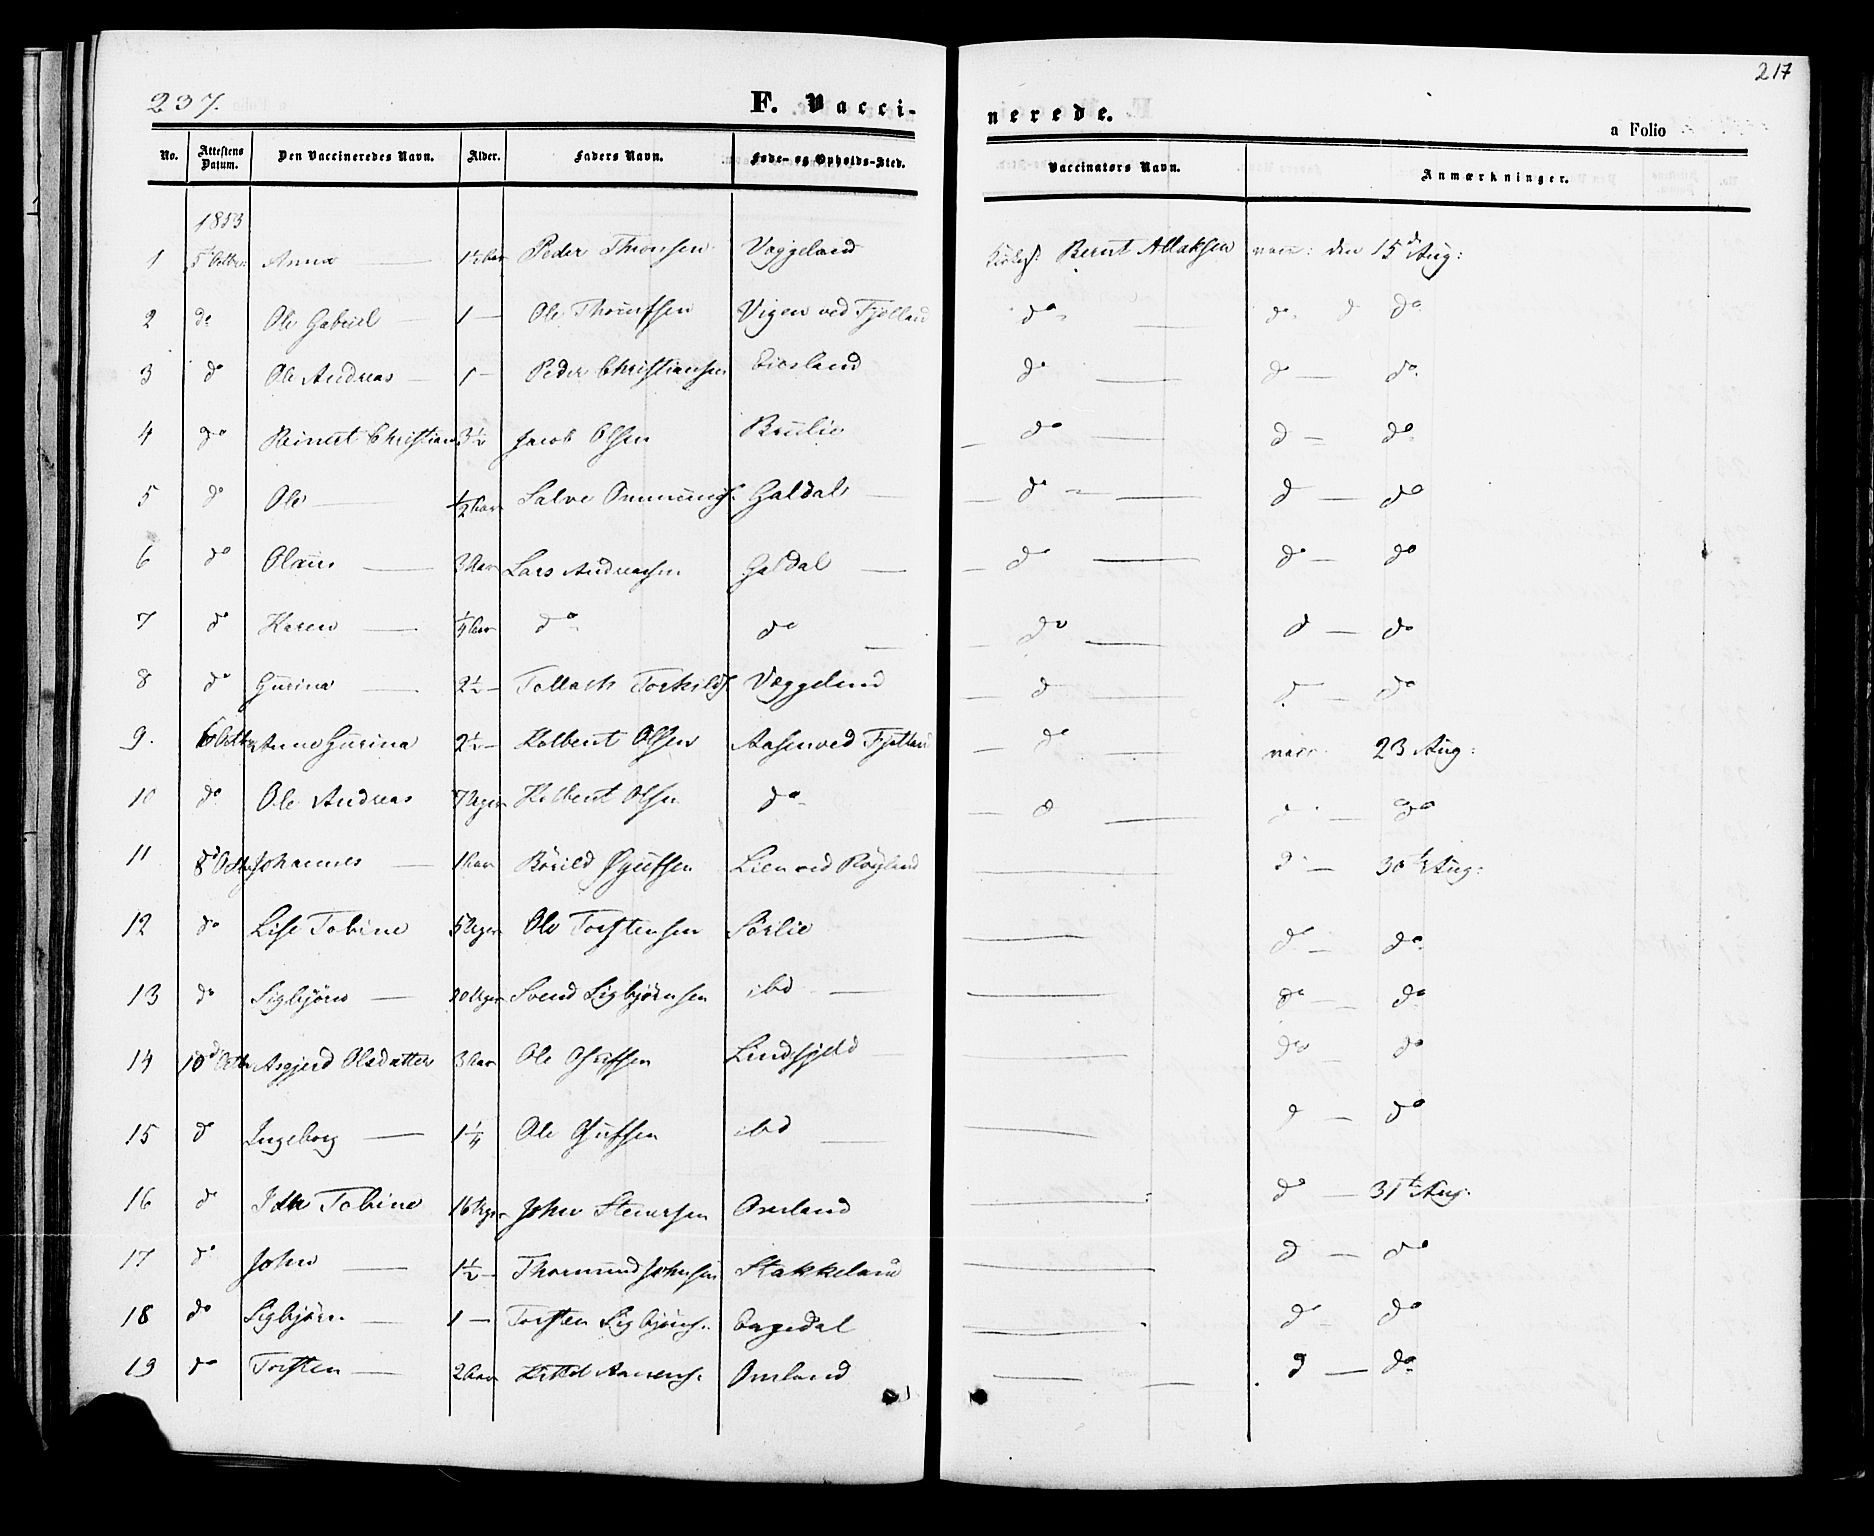 237.
F. Vacci-
nerede.
217
a Folio
No. Attestens Datum. Den Vaccineredes Navn. Alder. Faders Navn. Føde- og Opholds-Sted. Vaccinatørs Navn. Anmærkninger.
1853
1 5 Octbr Anna — 1½ Aar Peder Thorsen Væggeland Bernt Allaksen vacc: den 15d Aug:
2 do Ole Gabriel — 1 — Ole Vigen ved Fjotland do — do d do
3 do Ole Andreas — 1 — Peder Christiansen Eiesland do — do — do
4 do Reinert Christian 3½ Jacob Olsen Brulie do — d — do
5 do Ole — ½ Aar Salve Ommunds. Galdals — do — d — do
6 do Olaus — 3 Aar Lars Andreassen Galdal — do — do — do
7 do Karen — ¼ Aar do do — do — d — do
8 do Gurina — 2½ — Tollach Torkilds. Væggeland d — d. — do
9. 6 Octbr Anne Gurina 2½ — Kolbent Olsen Aasen ved Fjotland do — vacc. 23 Aug:
10 do Ole Andreas 7 Uger Kolbent Olsen do d — do
11 8d Octbr Johannes — 1 Aar Bårild Lien ved Røyland — d — 30te Aug:
12 do Lise Tobine 5 Uger Ole Torstensen Sørlie — do — do
13 do Sigbjørn — 20 Uger Svend Sigbjørnsen ibd — — do — do
14 10d Octbr Asgjerd Olsdatter 3 Aar Ole Lindsfjeld — do — do
15 d Ingeborg — 1¼ Ole ibd — — d — do
16 do Tobine 16 Uger John Steinersen Omland — do — 31te Aug:
17 do John — 1½ — Thormund Johnsen Stakkeland — d — do
18 do Sigbjørn — 1 — Torsten Sigbjørns. — do — do
19 do Torsten — 2 Aar Omland — d — do